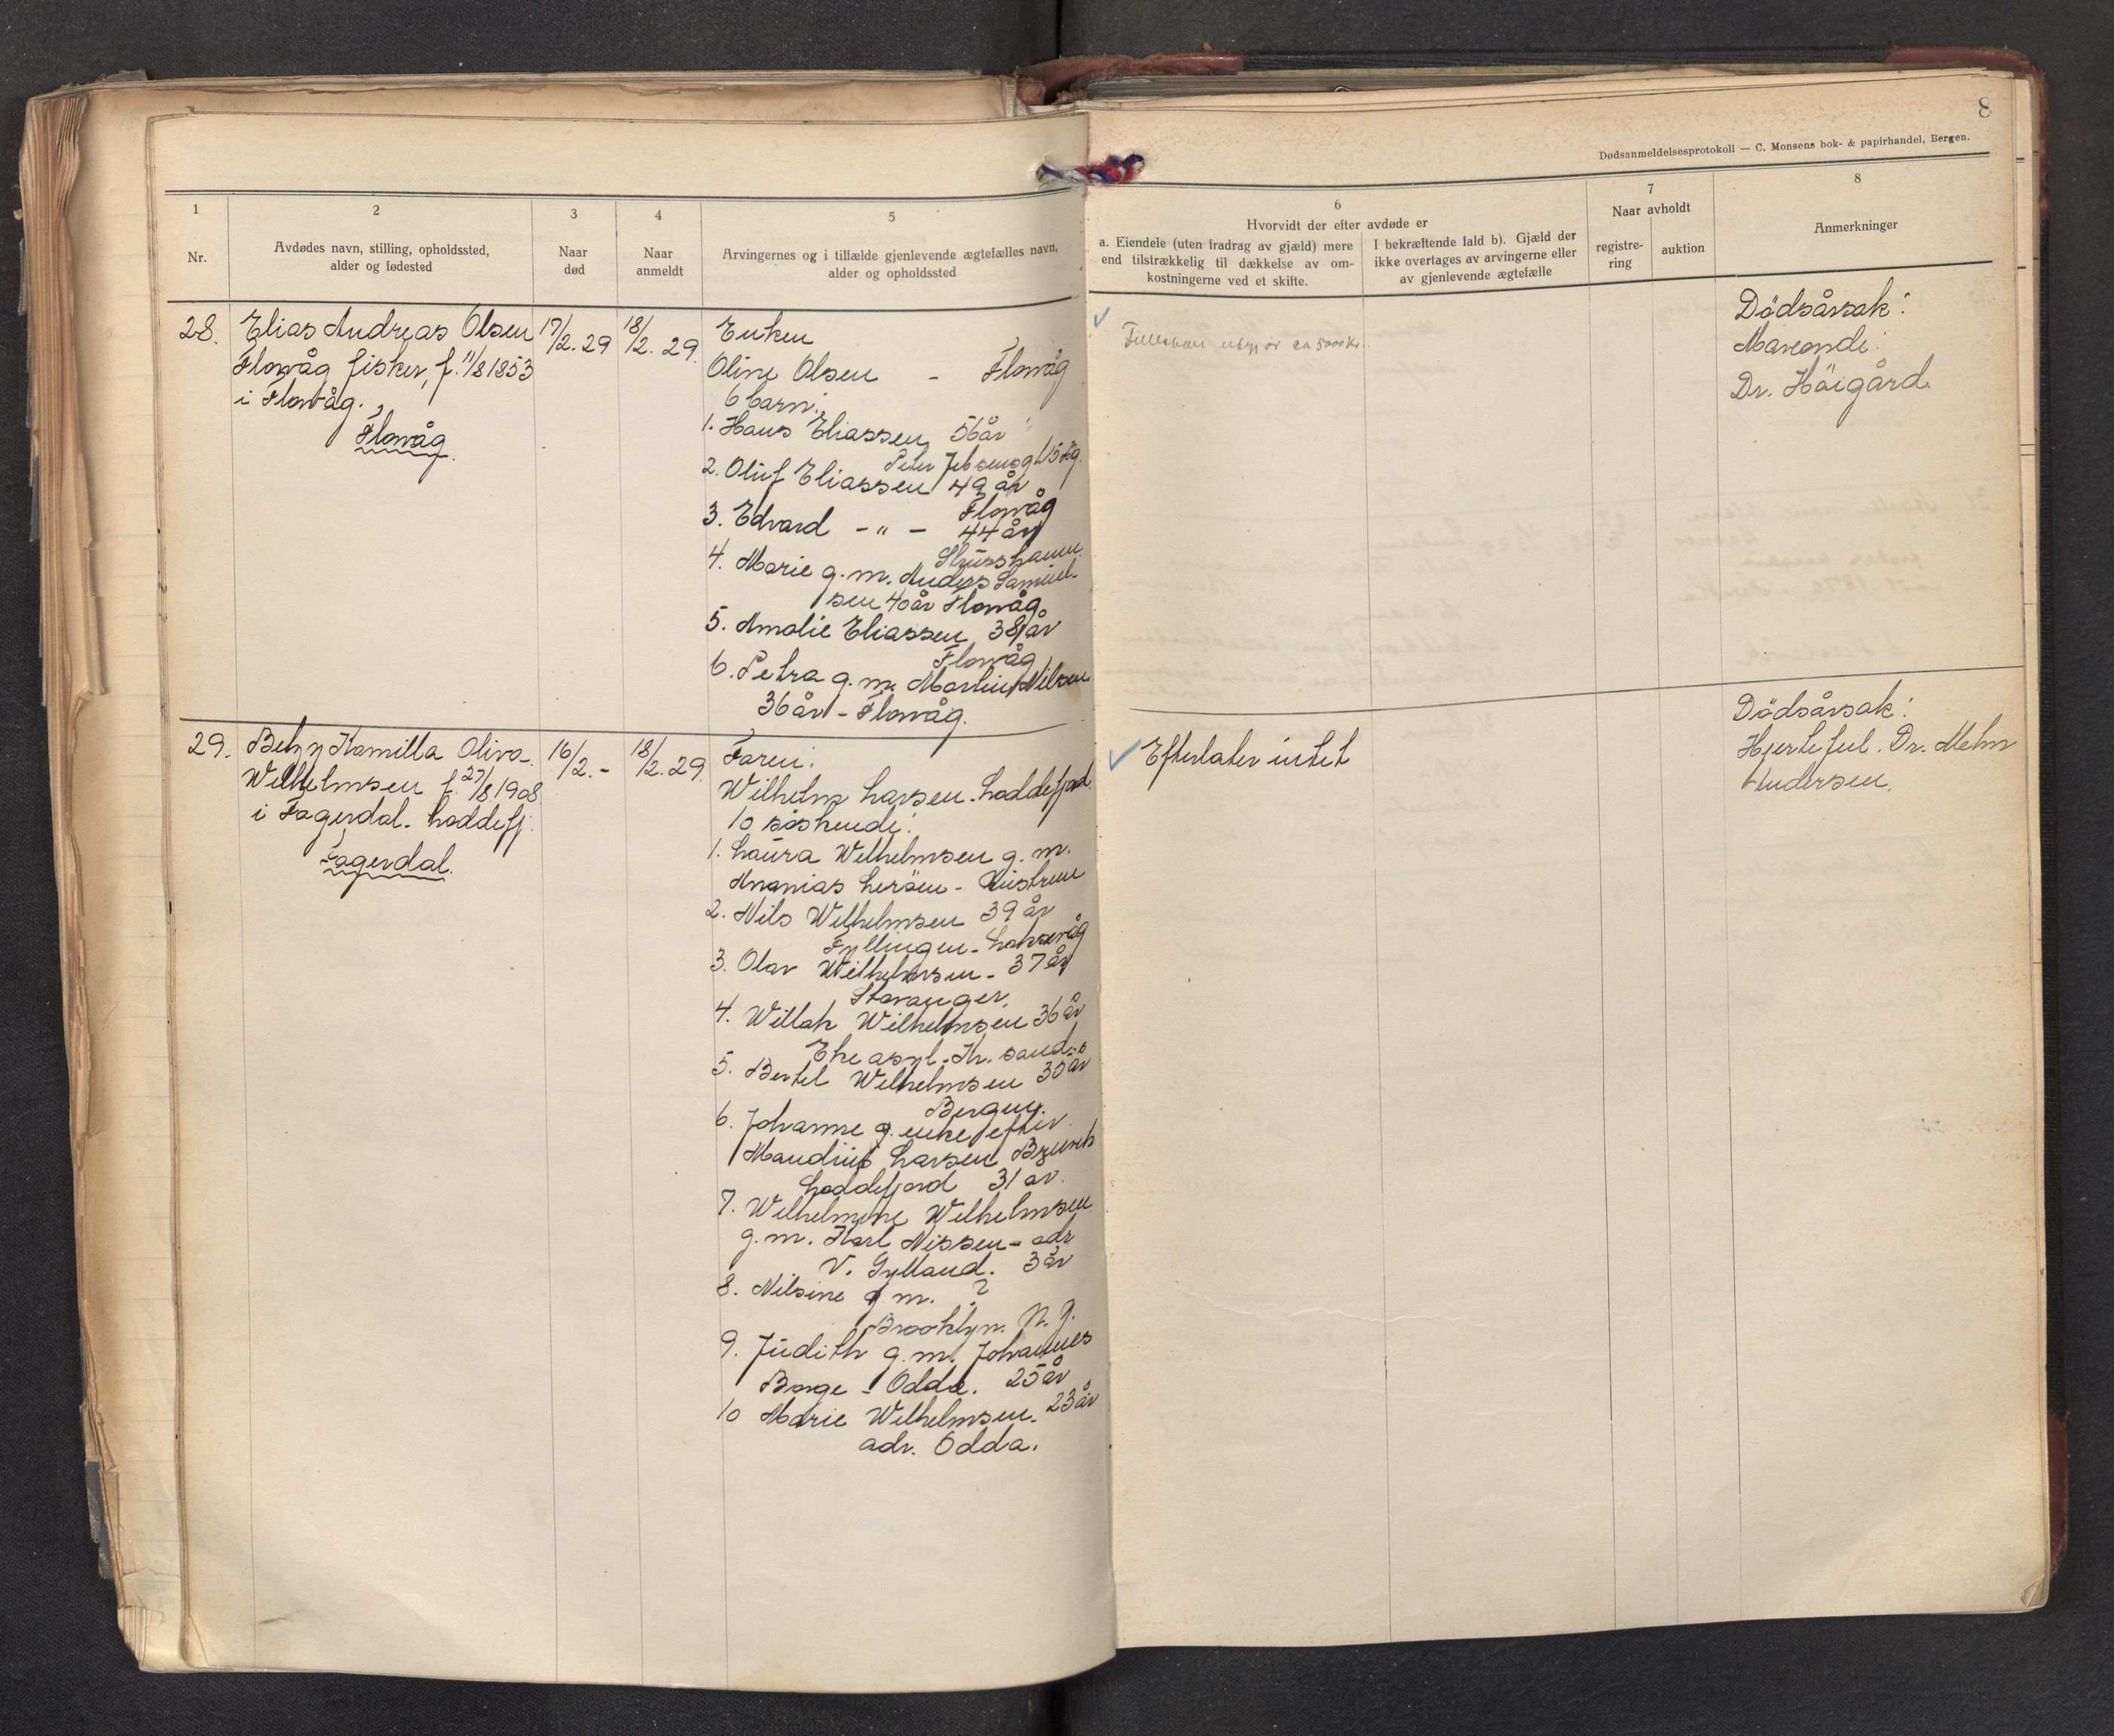 8
Dødsanmeldelsesprotokoll — C. Monsens bok- & papirhandel, Bergen.
1
Nr.
2
Avdødes navn, stilling, opholdssted,
alder og fødested
3
Naar
død
4
Naar
anmeldt
5
Arvingernes og i tilfælde gjenlevende ægtefælles navn,
alder og opholdssted
6
Hvorvidt der efter avdøde er
a. Eiendele (uten fradrag av gjæld) mere
end tilstrækkelig til dækkelse av om-
kostningerne ved et skifte.
I bekræftende fald b). Gjæld der
ikke overtages av arvingerne eller
av gjenlevende ægtefælle
7
Naar avholdt
registre-
ring
auktion
8
Anmerkninger
28.
Elias Andreas Olsen
Flowåg fisker, f. 11/8 1853
i Flowåg.
Flowåg.
17/2. 29
18/2. 29.
Enken
Oline Olsen - Flowåg
6 barn:
1. Hans Eliassen 56 år
Peter Jebsensg 15 Bg.
2. Oluf Eliassen 49 år
Flowåg
3. Edvard - " - 44 år
4. Marie g.m. Anders Samuel-
sen 40 år Flowåg
5. Amalie Eliassen 38 år
Flowåg
6. Petra g.m. Martin Nilsen
36 år - Flowåg.
ca 5000 kr.
Dödsårsak:
Dr. Höigård.
29.
Betzy Kamilla Oliva
Wilhelmsen f. 27/8 1908
i Fagerdal. Loddefj.
Fagerdal.
16/2. -
18/2. 29.
Faren:
Wilhelm Larsen. Loddefjord.
10 söskende:
1. Laura Wilhelmsen g.m.
Ananias Leröen -
2. Nils Wilhelmsen 39 år
Fyllingen - Laksevåg
3. Olav Wilhelmsen - 37 år
Stavanger.
4. Willak Wilhelmsen 36 år
Eke asyl. Kr. sand.
5. Bertel Wilhelmsen 35 år
Bergen.
6. Johanne g. enke efter
Larsen
Loddefjord 31 år.
7. Wilhelmine Wilhelmsen
g.m. Karl Nissen - adr
V. Gylland. 3 år
8. Nilsine g m. ?
Brooklyn. N. J.
9. Judith g.m. Johannes
Borge - Odda. 25 år
10 Marie Wilhelmsen. 23 år
adr. Odda.
Efterlater intet
Dödsårsak:
Hjertefeil. Dr. Mehn
Andersen.